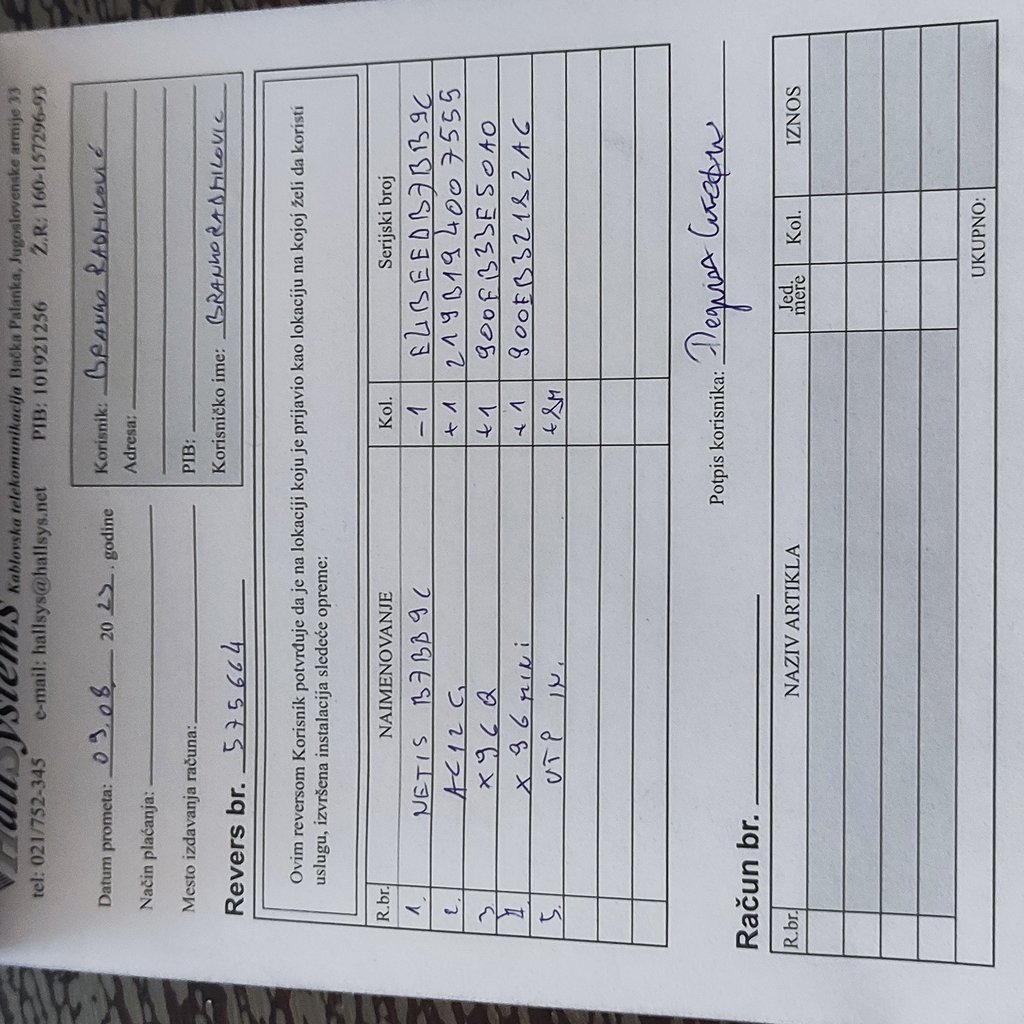 HallSystems Kablovska telekomunikacija Bačka Palanka, Jugoslovenske armije 33
tel: 021/752-345 e-mail: hallsys@hallsys.net PIB: 101921256 Ž.R: 160-157296-93
Datum prometa: 09.08. 2023. godine
Način plaćanja:
Mesto izdavanja računa:
Korisnik: BRANKO RADMILOVIĆ
Adresa:
PIB:
Korisničko ime: BRANKORADMILOVIC
Revers br. 575664
Ovim reversom Korisnik potvrđuje da je na lokaciji koju je prijavio kao lokaciju na kojoj želi da koristi
uslugu, izvršena instalacija sledeće opreme:
R.br. NAIMENOVANJE Kol. Serijski broj
1. NETIS B7BB9C -1 E21BEEDB7BB9C
2. AC12G +1 219B194007555
3. X96Q +1 900EB33E50A0
4. X96 MINI +1 900EB32182A6
5. UTP IN.
Potpis korisnika:
Račun br.
R.br. NAZIV ARTIKLA Jed. mere Kol. IZNOS
UKUPNO: